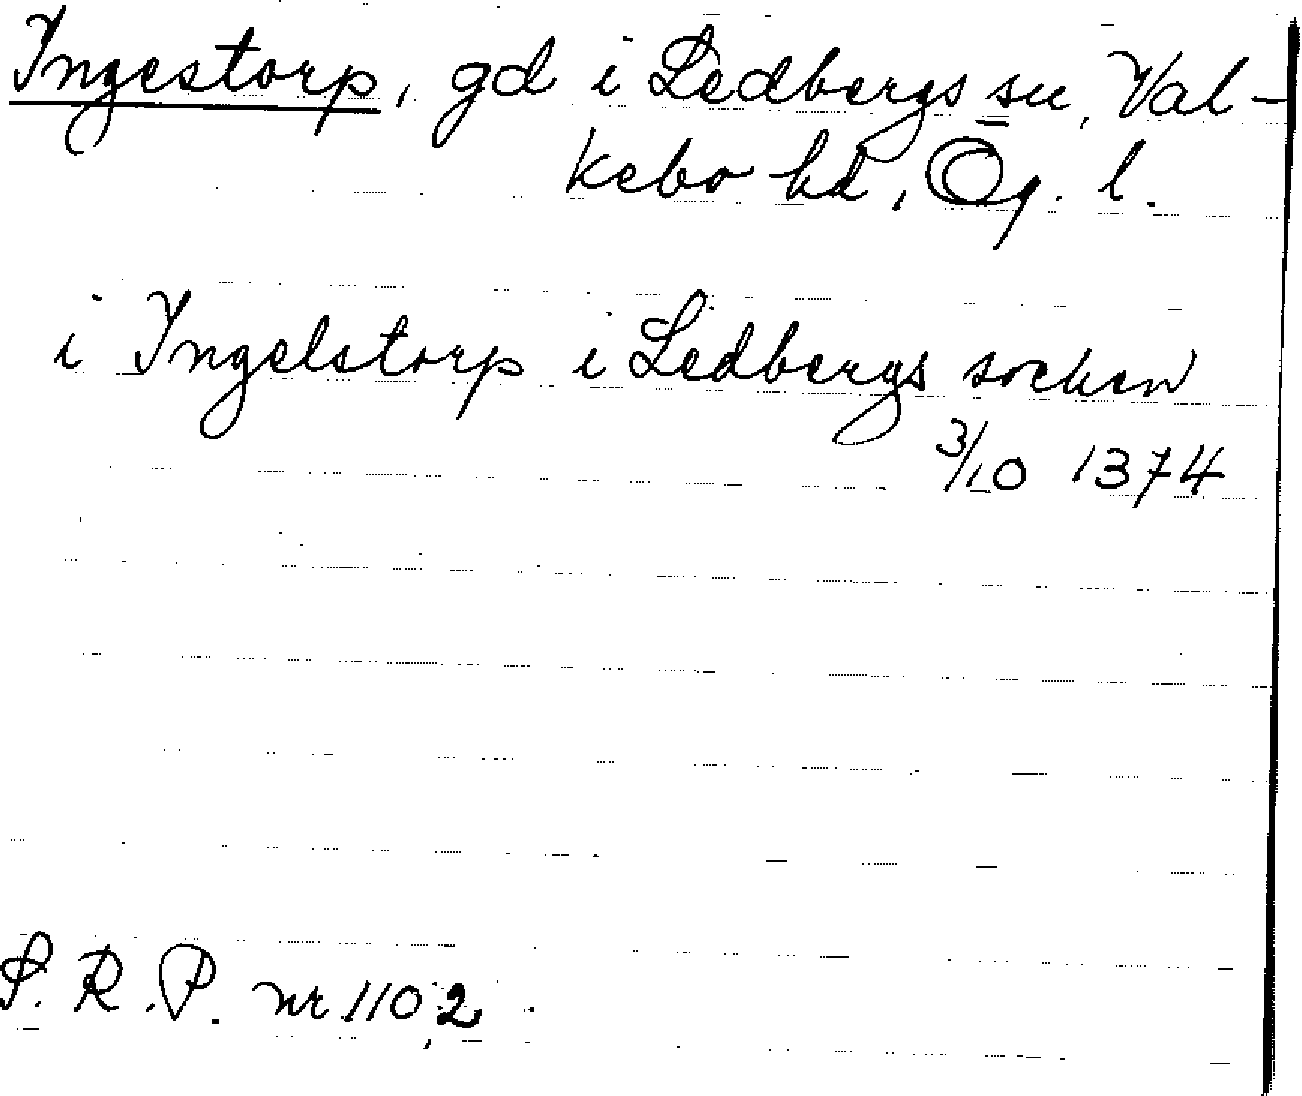 Ingestorp, gd i Ledbergs sn, Val-
kebo hd, Ög. l.
i Ingelstorp i Ledbergs socken
3/10 1374
S. R. P. nr 1102.